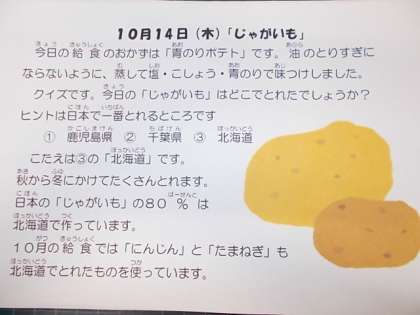 10月14日(木)「じゃがいも」
今日の給食のおかずは「青のりポテト」です。油のとりすぎに
ならないように、蒸して塩・こしょう・青のりで味つけしました。
クイズです。今日の「じゃがいも」はどこでとれたでしょうか?
ヒントは日本で一番とれるところです
① 鹿児島県 ② 千葉県 ③ 北海道
こたえは③の「北海道」です。
秋から冬にかけてたくさんとれます。
日本の「じゃがいも」の80%は
北海道で作っています。
10月の給食では「にんじん」と「たまねぎ」も
北海道でとれたものを使っています。